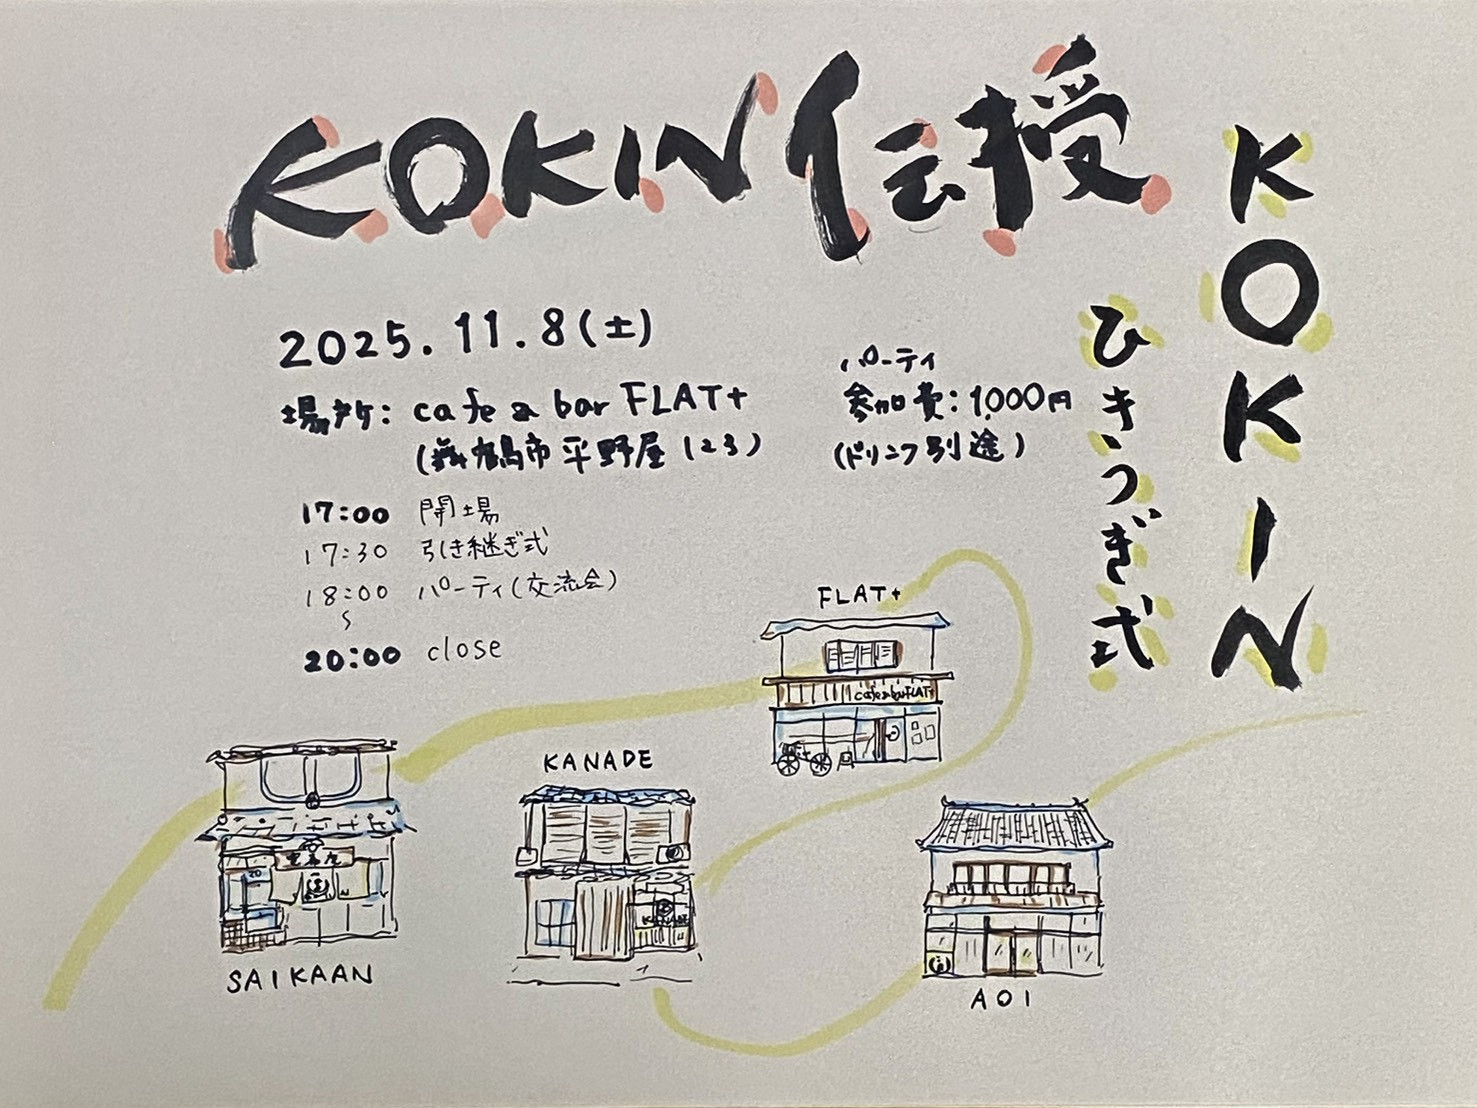 KOKIN伝授
KOKIN
ひきつぎ式
2025.11.8(土)
場所: cafe & bar FLAT+
(舞鶴市平野屋123)
パーティ
参加費:1,000円
(ドリンク別途)
17:00 開場
17:30 引き継ぎ式
18:00 パーティ(交流会)
〜
20:00 close
FLAT+
cafe & bar FLAT+
KANADE
KANADE
SAIKAAN
AOI